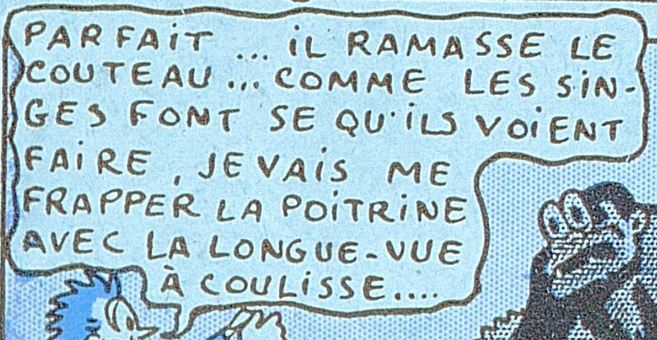 PARFAIT ... iL RAMASSE LE
COUTEAU ... COMME LES SiN-
GES FONT SE QU'iLS VOiENT
FAiRE, JE VAiS ME
FRAPPER LA POiTRiNE
AVEC LA LONGUE-VUE
À COULiSSE....